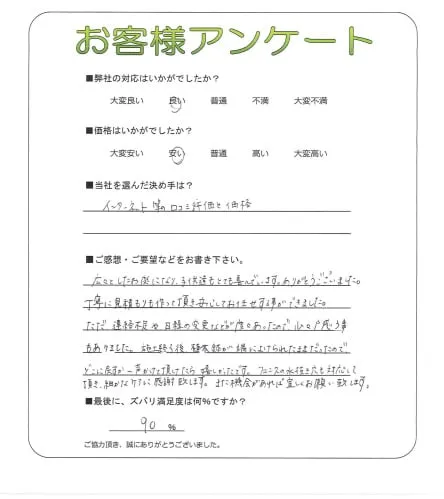 お客様アンケート
■弊社の対応はいかがでしたか？
大変良い 良い 普通 不満 大変不満
■価格はいかがでしたか？
大変安い 安い 普通 高い 大変高い
■当社を選んだ決め手は？
インターネット等の口コミ評価と価格
■ご感想・ご要望などをお書き下さい。
広々としたお庭になり、子供達もとても喜んでいます。ありがとうございました。
丁寧に見積もりも作って頂き安心してお任せする事ができました。
ただ、連絡不足や日程の変更などが度々あったので、 思う事
もありました。施工終了後、植木鉢が 端によけられたままだったので
どこに戻すか一声かけて頂けたら嬉しかったです。フェンスの水抜き穴も対応して
頂き、細かな 感謝致します。また機会があれば宜しくお願い致します。
■最後に、ズバリ満足度は何%ですか？
90 %
ご協力頂き、誠にありがとうございました。